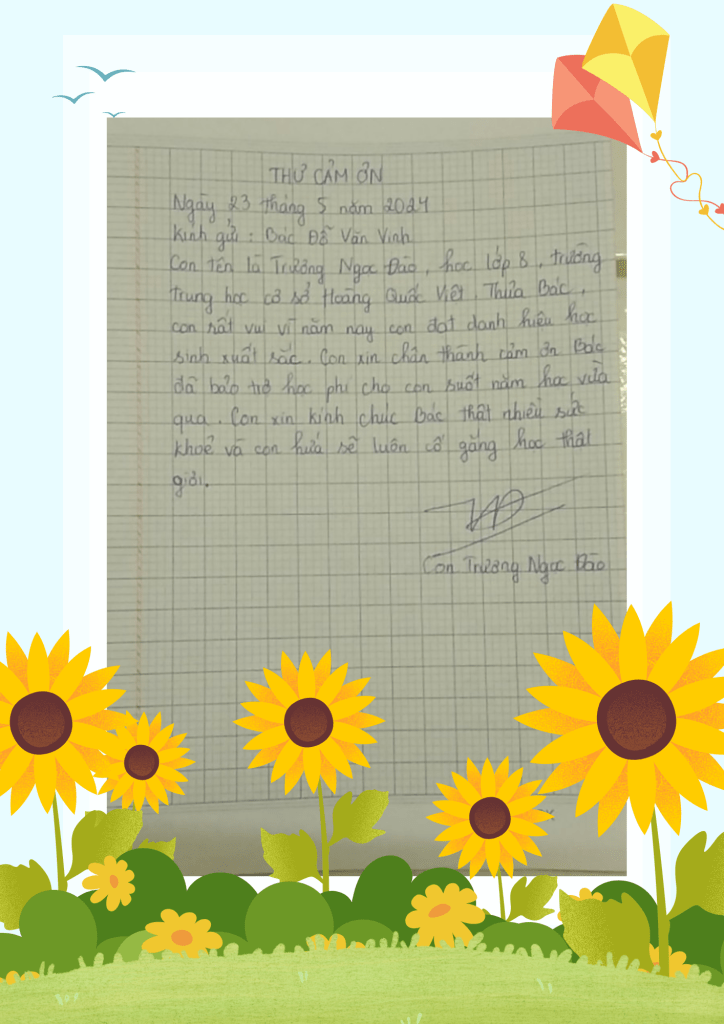 THƯ CẢM ƠN
Ngày 23 tháng 5 năm 2024
Kính gửi : Bác Đỗ Văn Vinh
Con tên là Trương Ngọc Đào, học lớp 8, trường
trung học cơ sở Hoàng Quốc Việt, Thừa Bác,
con rất vui vì năm nay con đạt danh hiệu học
sinh xuất sắc. Con xin chân thành cảm ơn Bác
đã bảo trợ học phí cho con suốt năm học vừa
qua. Con xin kính chúc Bác thật nhiều sức
khoẻ và con hứa sẽ luôn cố gắng học thật
giỏi.
Con Trương Ngọc Đào